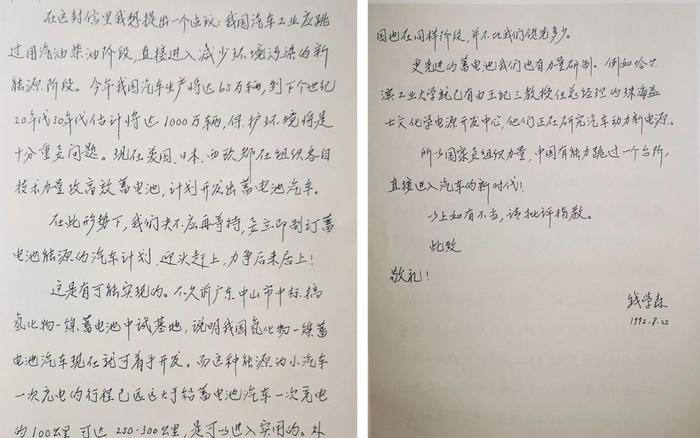 在这封信里我想提出一个建议：我国汽车工业应跳
过用汽油柴油阶段，直接进入减少环境污染的新
能源阶段。今年我国汽车生产将达65万辆，到下个世纪
20年代30年代估计将达1000万辆，保护环境将是
十分重要问题。现在美国、日本、西欧都在组织各自
技术力量攻高效蓄电池，计划开发出蓄电池汽车。
在此形势下，我们决不应再等待，要立即制订蓄
电池能源的汽车计划，迎头赶上，力争后来居上！
这是有可能实现的。不久前广东中山市中标，搞
氢化物—镍蓄电池中试基地，说明我国氢化物—镍蓄
电池汽车现在就可着手开发。而这种能源的小汽车
一次充电的行程已远远大于铅蓄电池汽车一次充电
的100公里，可达250-300公里，是可以进入实用的。外
国也在同样阶段，并不比我们领先多少。
更先进的蓄电池我们也有力量研制。例如哈尔
滨工业大学就已有由王纪三教授任总经理的珠海益
士文化学电源开发中心，他们正在研究汽车动力新电源。
所以国家要组织力量，中国有能力跳过一个台阶，
直接进入汽车的新时代！
以上如有不当，请批评指教。
此致
敬礼！
钱学森
1992.8.22